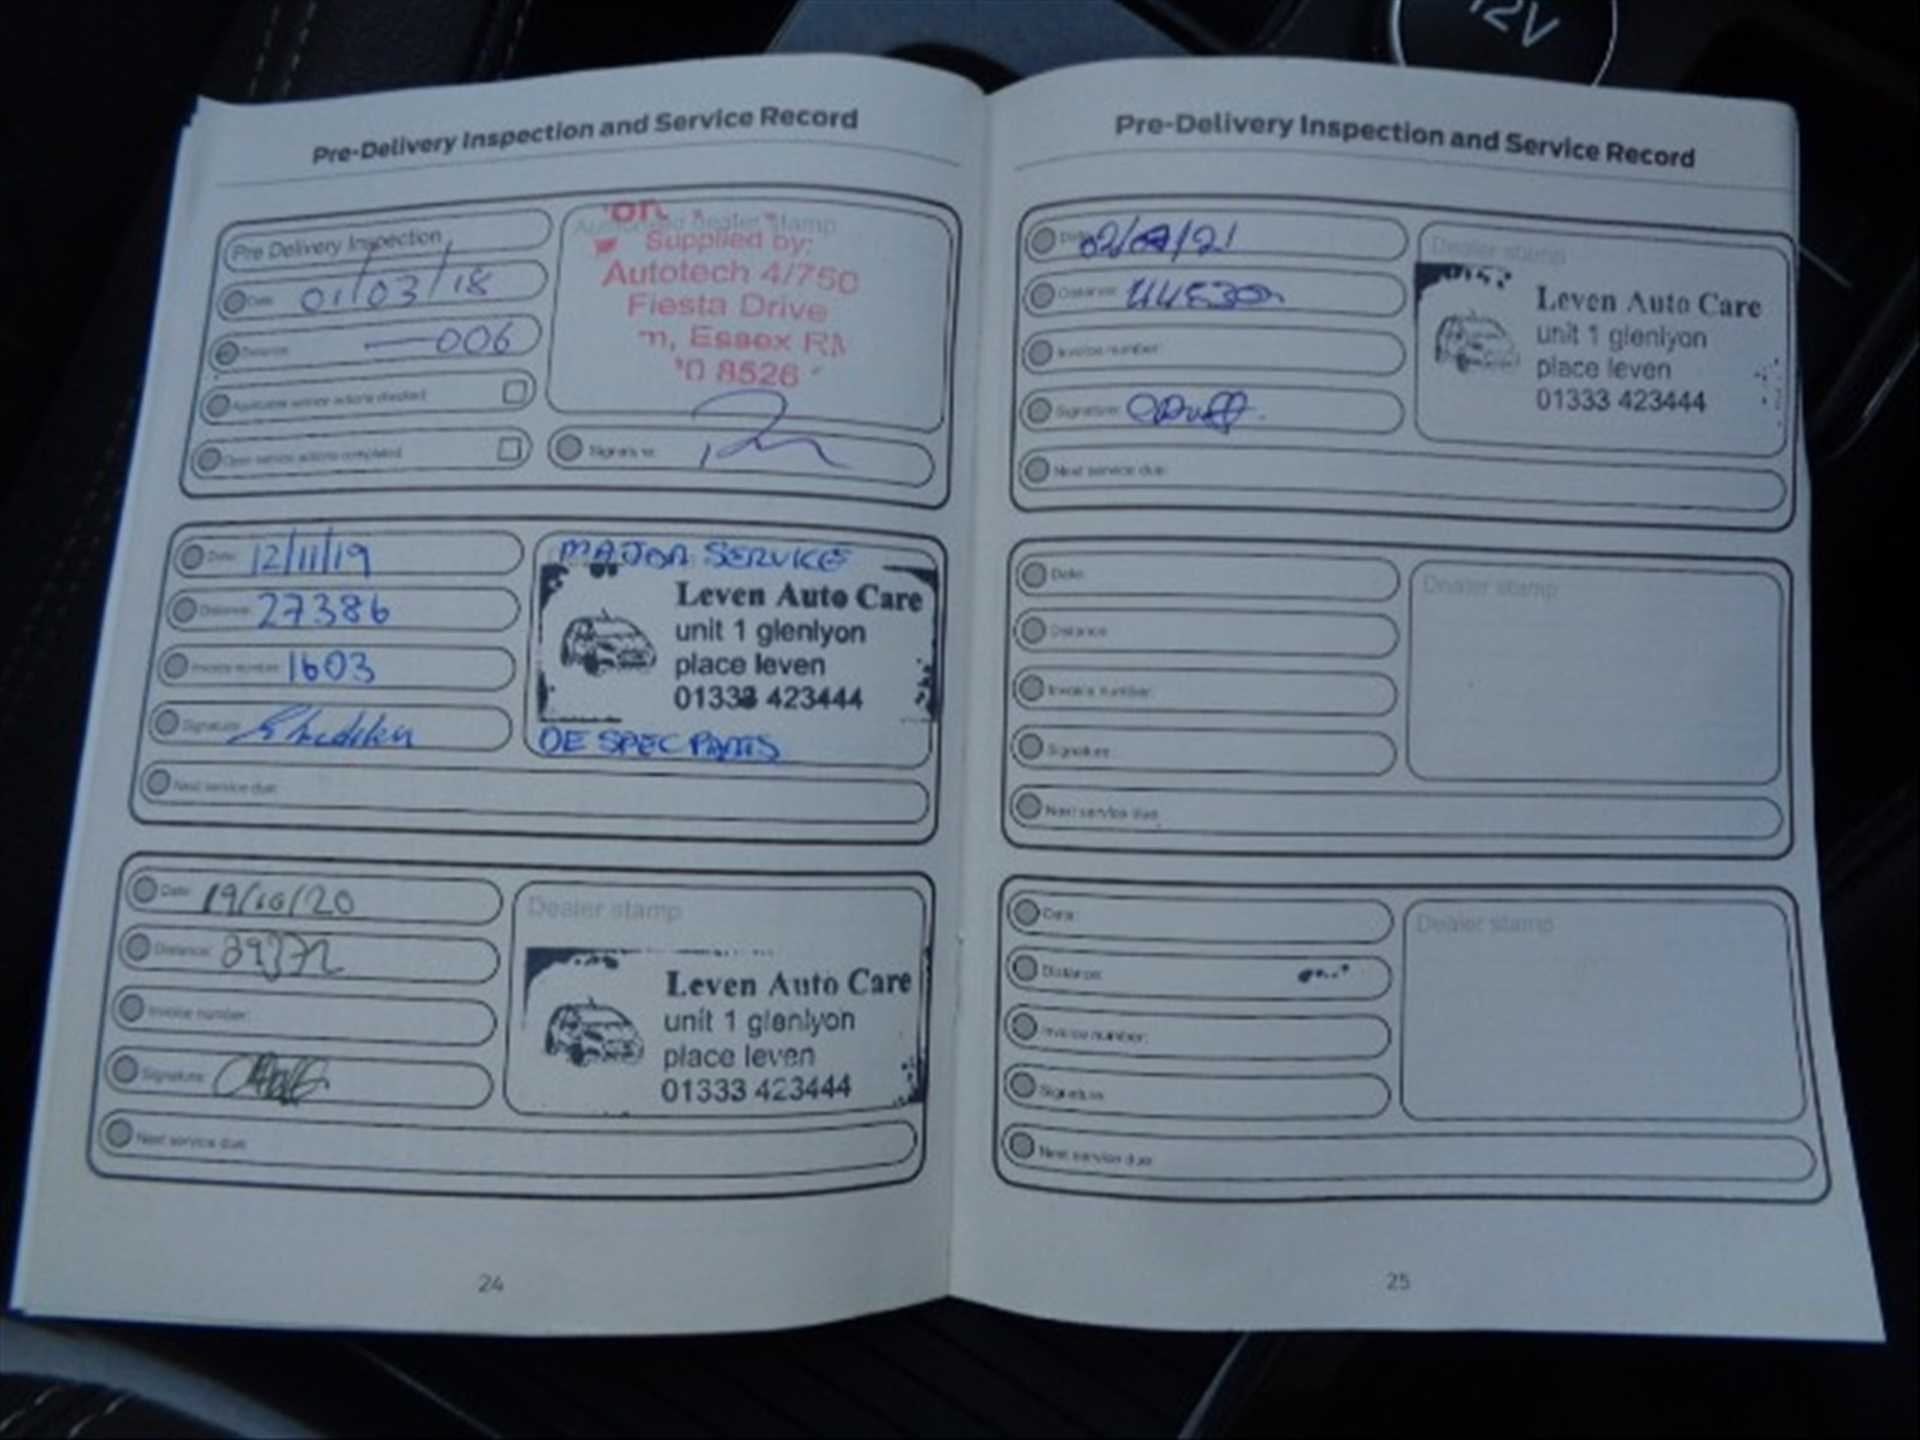 12V
Pre-Delivery Inspection and Service Record
Pre Delivery Inspection
Date: 01/03/18
Distance: —006
Applicable service actions checked:
Open service actions completed:
Authorised dealer stamp
Supplied by:
Autotech 4/750
Fiesta Drive
Essex RM
0 8526
Signature:
Date: 12/11/19
Distance: 27386
Invoice number: 1603
Signature:
Next service due:
MAJOR SERVICE
Leven Auto Care
unit 1 glenlyon
place leven
01333 423444
OE SPEC PARTS
Date: 19/10/20
Distance:
Invoice number:
Signature:
Next service due:
Dealer stamp
Leven Auto Care
unit 1 glenlyon
place leven
01333 423444
24
Pre-Delivery Inspection and Service Record
Date: 02/07/21
Distance:
Invoice number:
Signature:
Next service due:
Dealer stamp
Leven Auto Care
unit 1 glenlyon
place leven
01333 423444
Date:
Distance:
Invoice number:
Signature:
Next service due:
Dealer stamp
Date:
Distance:
Invoice number:
Signature:
Next service due:
Dealer stamp
25